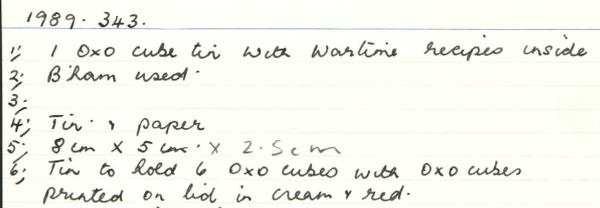 1989. 343.
1; 1 Oxo cube tin with Wartime recipes inside
2; B'ham used.
3;
4; Tin. & paper
5; 8 cm X 5 cm. X 2.5cm
6; Tin to hold 6 Oxo cubes with Oxo cubes
printed on lid in cream & red.